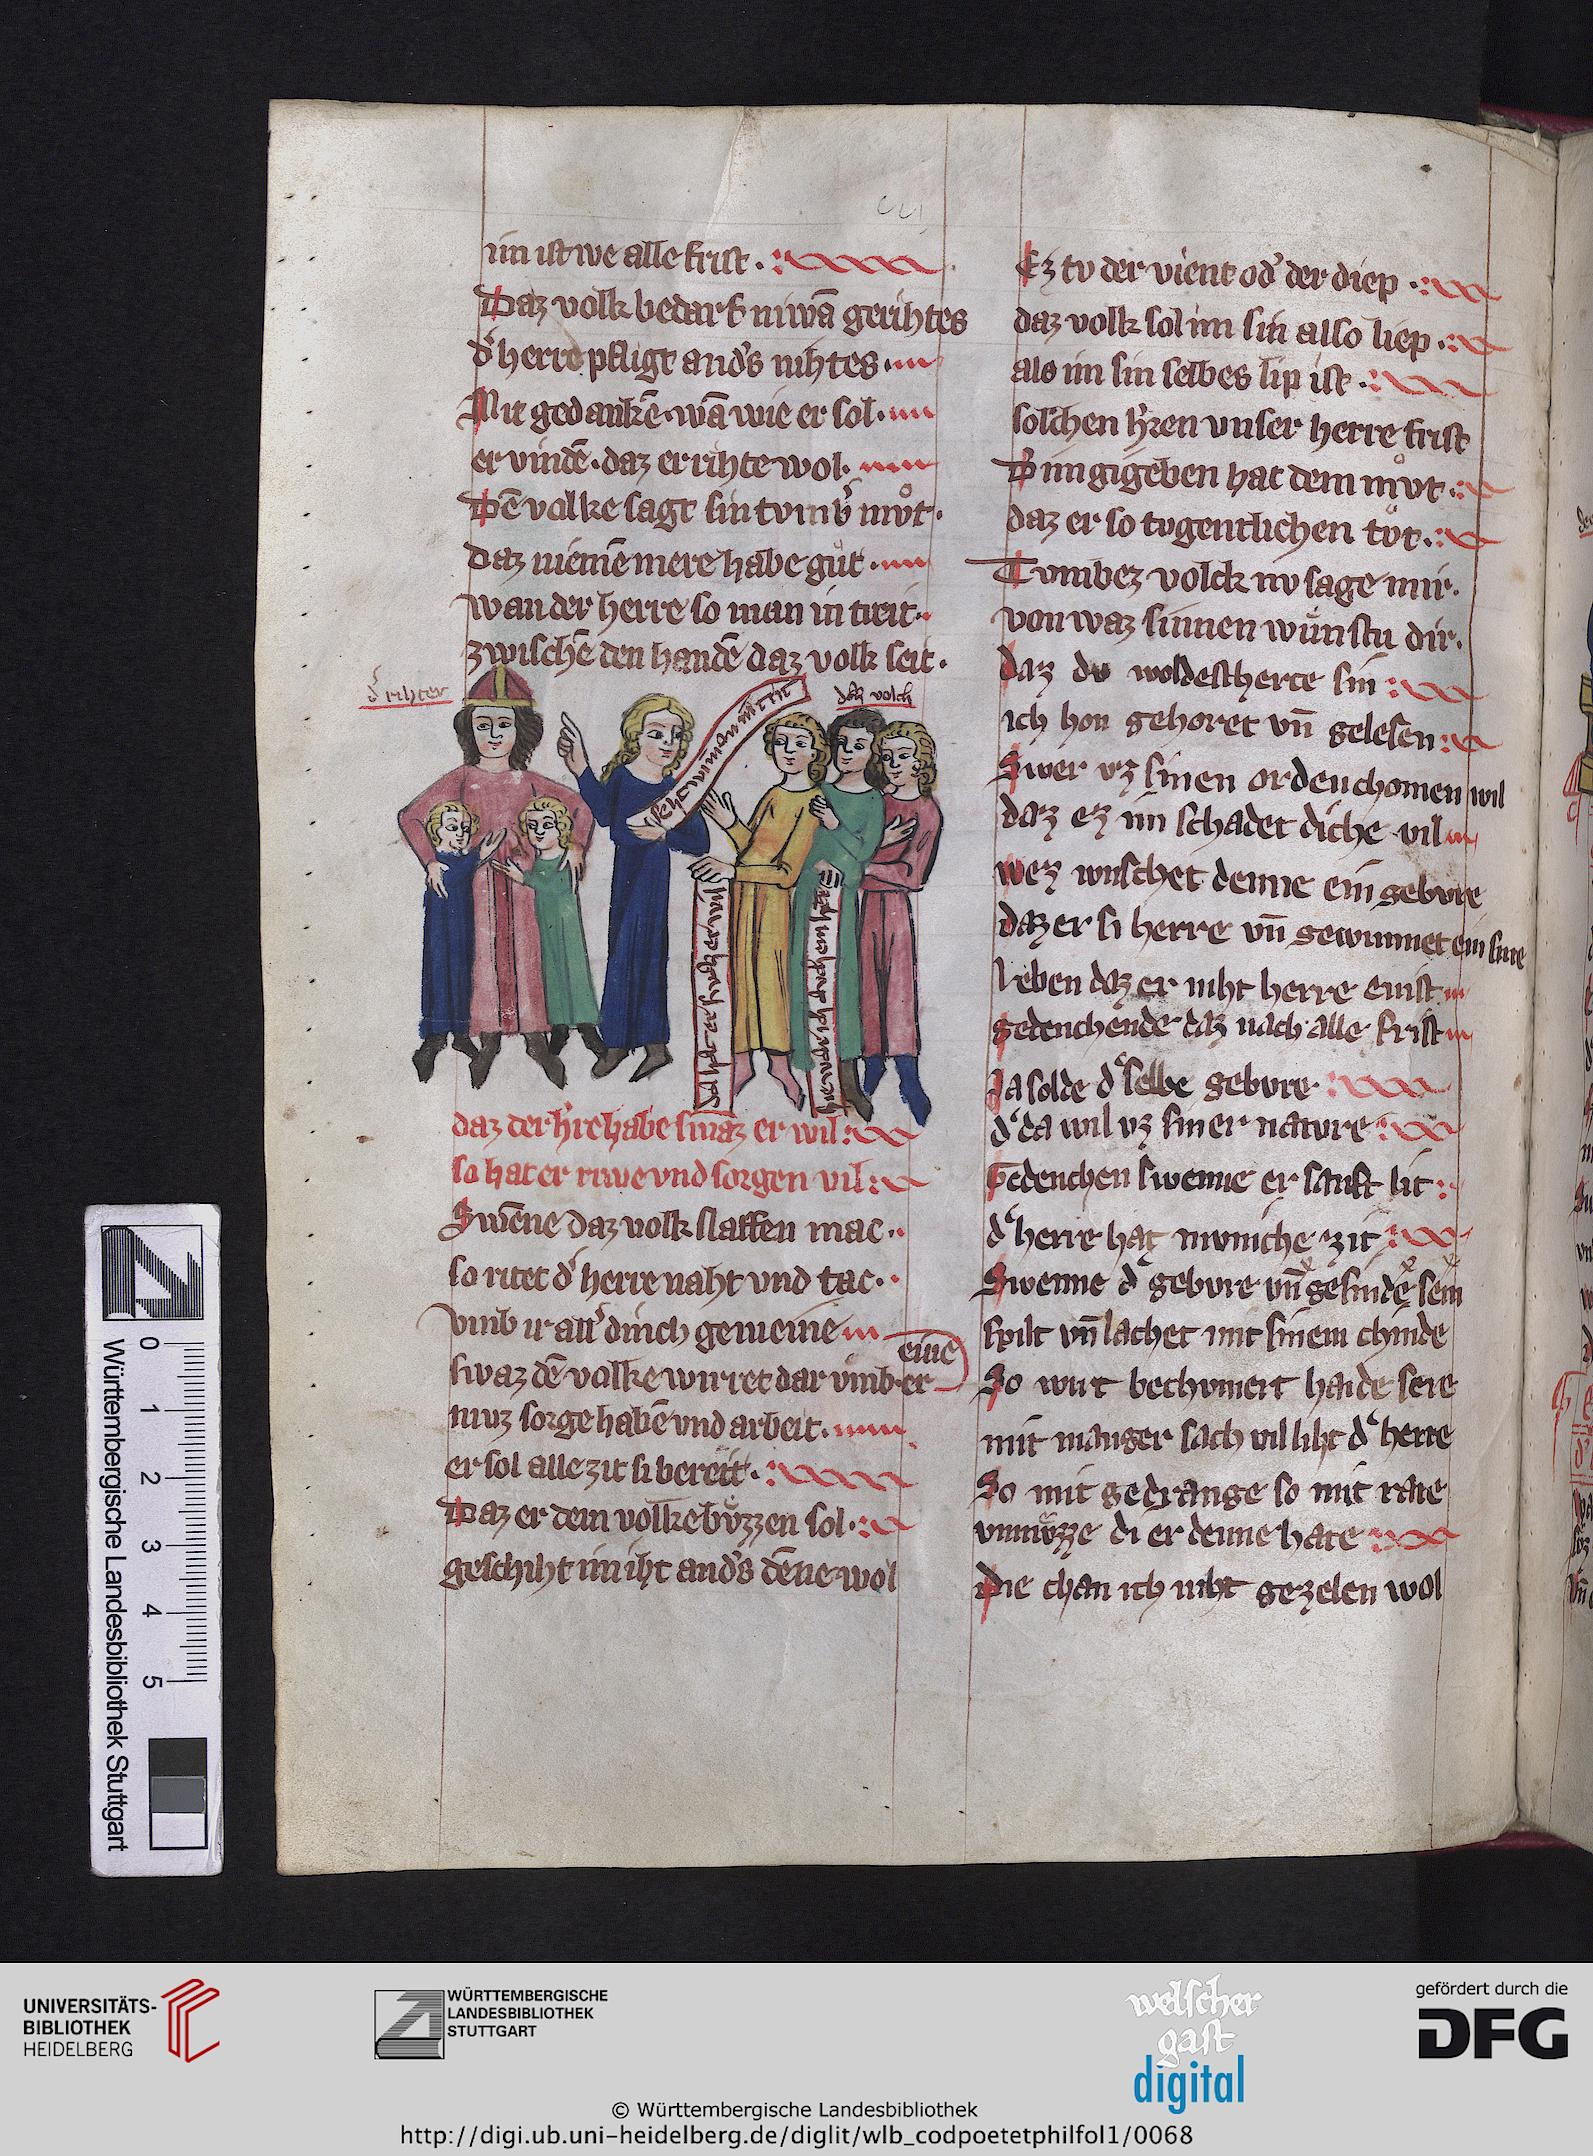 im ist we alle frist.
Daz volk bedarf niwā gerihtes
d͛ herre pfligt and͛s nihtes.
Mit gedankē. wā wie er sol.
er vindē. daz er rihte wol.
Dē volke sagt sin tvmb͛ mvͦt.
daz niemē mere habe guͦt.
wan der herre so man in treit.
zwischē den handē daz volk seit.
d͛ rihter
daz volch
daz der h͛re habe swaz er wil
so hat er riwe vnd sorgen vil
Swēne daz volk slaffen mac.
so ritet d͛ herre naht vnd tac.
vmb ir all͛ dinch gemeine
swaz dē volke wirret dar vmb. er
eine
mvz sorge habē vnd arbeit.
er sol alle zit si bereit.
Daz er dem volke bvͤzzen sol.
geschiht im iht and͛s dēne wol
Ez tv der vient od͛ der diep.
daz volk sol im sin also liep.
als im sin selbes lip ist.
solchen h͛ren vnser herre frist
D͛ im gigeben hat dem mvͦt.
daz er so tvgentlichen tvͦt.
Tvmbez volck nv sage mir.
von waz sinnen wuͤnstu dir.
daz dv woldest herre sin
ich hon gehoret vn̄ gelesen
Swer vz sinen orden chomen wil
daz ez im schadet diche vil
wez wuschet denne ein gebvre
daz er si herre vn̄ gewinnet ein sure
Leben daz er niht herre enist
gedenchende daz nach alle frist
Ja solde d͛ selbe gebvre
d͛ da wil vz siner natvre
Gedenchen swenne er sanft lit
d͛ herre hat mvniche zit
Swenne d͛ gebvre vn̄ gesinde sein
spilt vn̄ lachet mit sinem chinde
So wirt bechvmert harde sere
mit manger sach vil liht d͛ herre
So mit gedrange so mit rate
vnmvͤzze di er denne hate
Die chan ich niht gezelen wol
Württembergische Landesbibliothek Stuttgart
0 1 2 3 4 5
UNIVERSITÄTS-
BIBLIOTHEK
HEIDELBERG
WÜRTTEMBERGISCHE
LANDESBIBLIOTHEK
STUTTGART
welscher
gast
digital
gefördert durch die
DFG
© Württembergische Landesbibliothek
http://digi.ub.uni-heidelberg.de/diglit/wlb_codpoetetphilfol1/0068